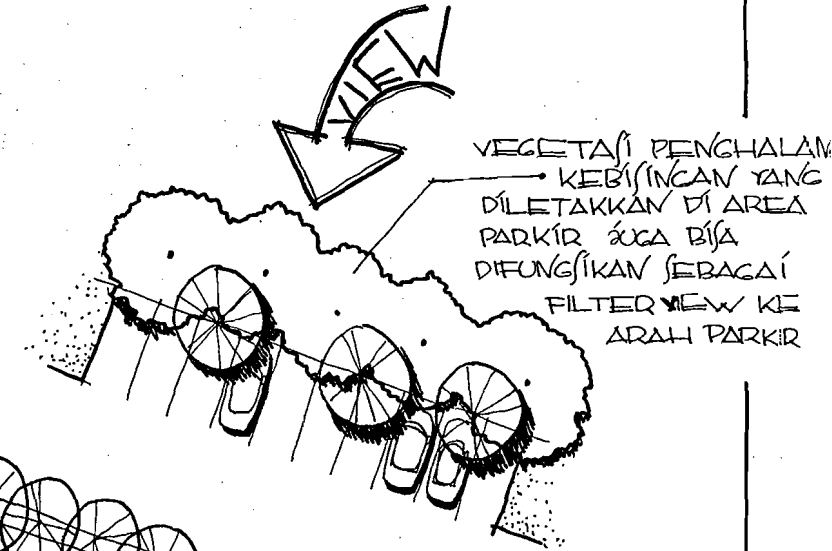 VIEW
VEGETASI PENGHALANG
KEBISINGAN YANG
DILETAKKAN DI AREA
PARKIR JUGA BISA
DIFUNGSIKAN SEBAGAI
FILTER VIEW KE
ARAH PARKIR